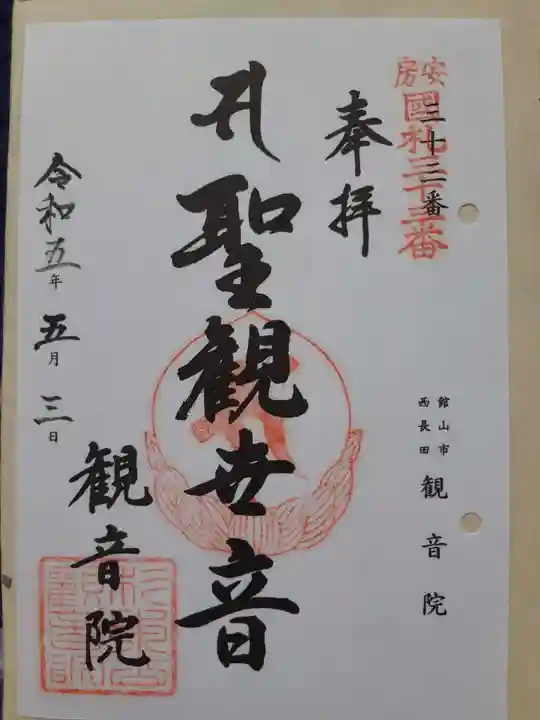 安房
國札三十三番
三十三番
奉拝
聖観世音
観音院
令和五年五月三日
館山市
西長田
観音院